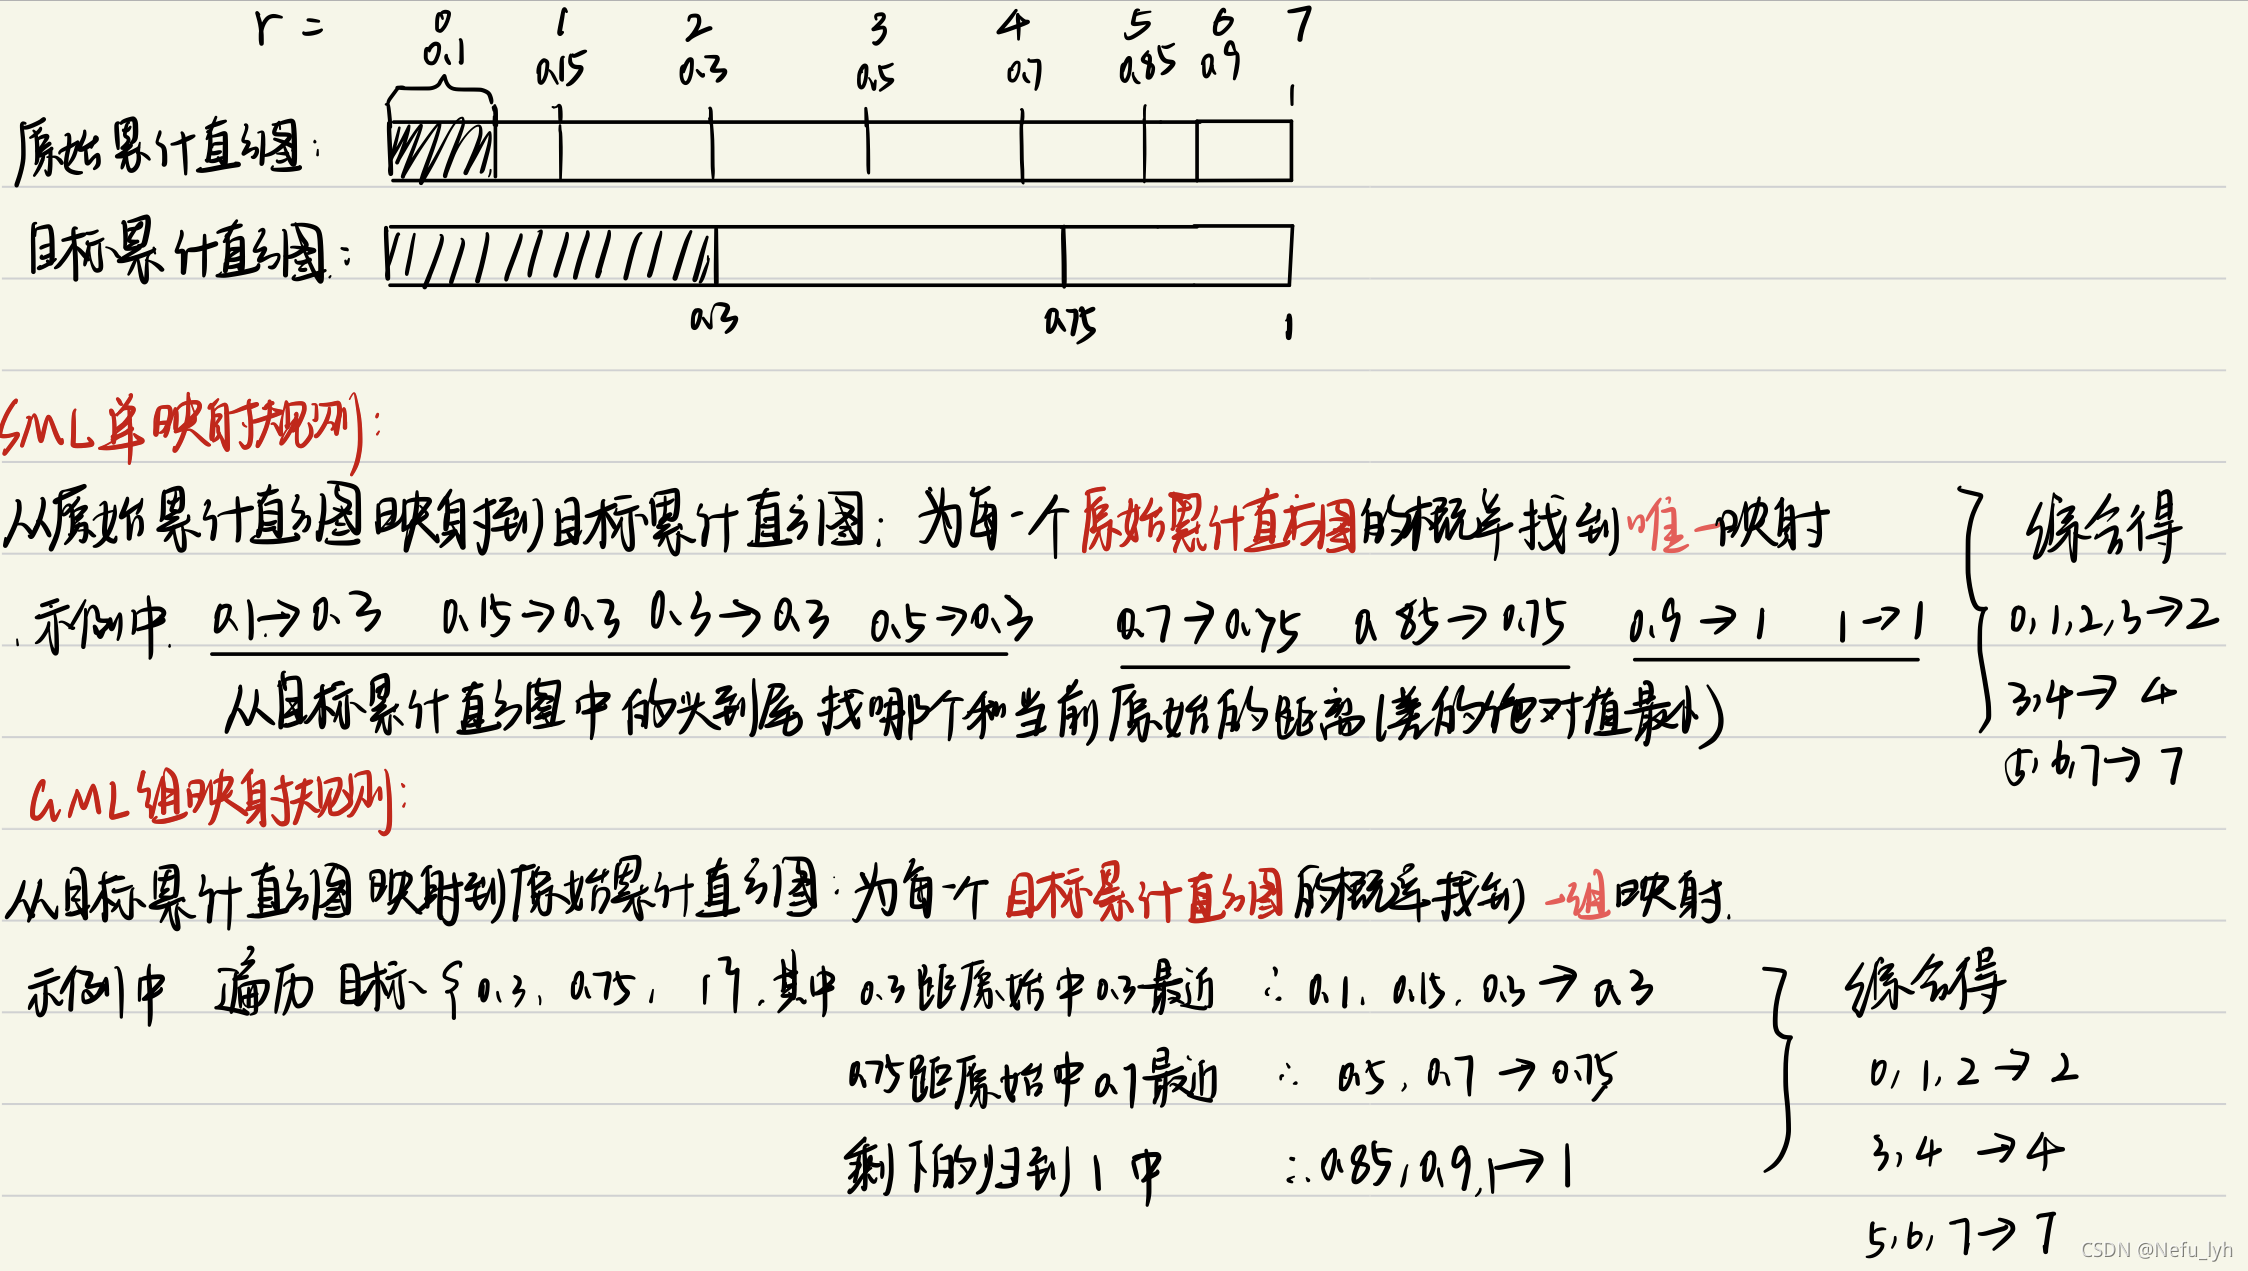 r = 0 1 2 3 4 5 6 7
0.1 0.15 0.3 0.5 0.7 0.85 0.9 1
原始累计直方图:
目标累计直方图:
0.3 0.75 1
SML单映射规则:
从原始累计直方图映射到目标累计直方图: 为每一个原始累计直方图的概率找到唯一映射
综合得
示例中. 0.1→0.3 0.15→0.3 0.3→0.3 0.5→0.3 0.7→0.75 0.85→0.75 0.9→1 1→1
0,1,2,3→2
从目标累计直方图中的头到尾找哪个和当前原始的距离(差的绝对值最小)
3,4→4
5,6,7→7
GML组映射规则:
从目标累计直方图映射到原始累计直方图: 为每一个目标累计直方图的概率找到一组映射.
示例中 遍历目标{0.3, 0.75, 1}.其中0.3距原始中0.3最近 ∴0.1, 0.15, 0.3→0.3
综合得
0.75距原始中0.7最近 ∴ 0.5, 0.7→0.75
0,1,2→2
剩下的归到1中 ∴0.85,0.9,1→1
3,4→4
5,6,7→7
CSDN @Nefu_lyh